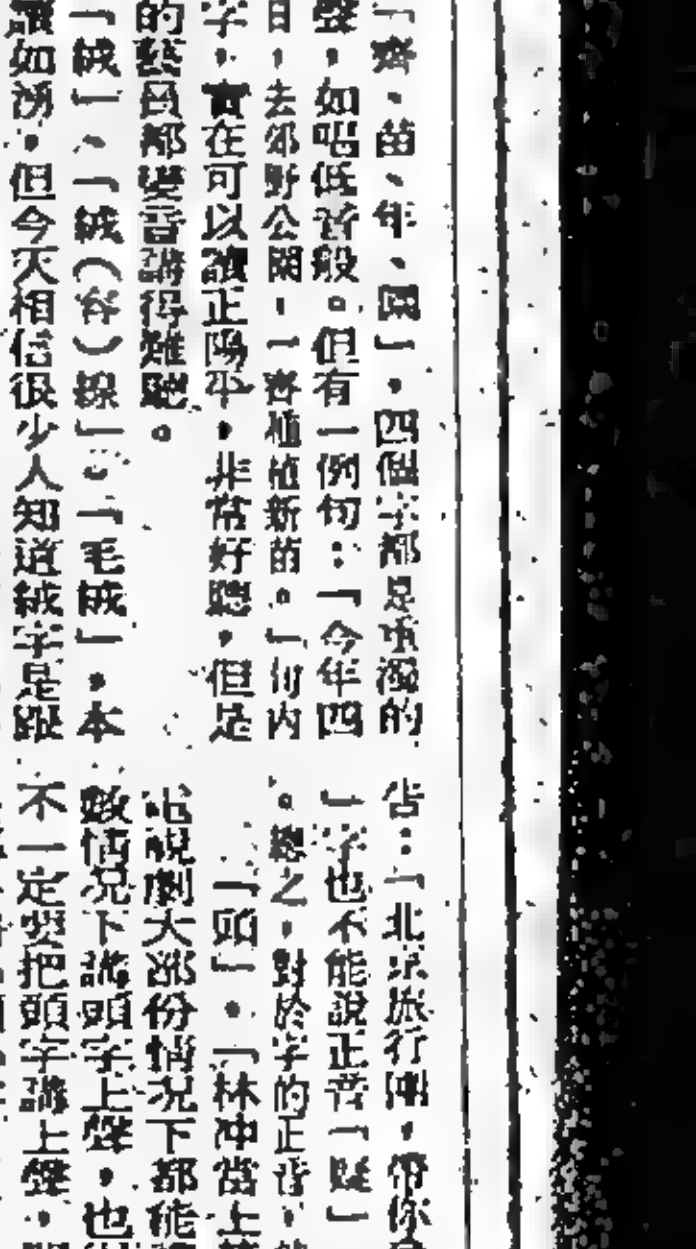 「齊、苗、年、團」，四個字都是重濁的
聲，如唱低音般。但有一例句：「今年四
日，去郊野公園，一齊植植新苗。」句內
字，實在可以讀正陽平，非常好聽，但是
的藝員都變音講得難聽。
「絨」、「絨（容）線」。「毛絨」，本
讀如湧，但今天相信很少人知道絨字是跟
告：「北京旅行團，帶你
」字也不能說正音「疑」
。總之，對於字的正音，
「頭」。「林冲當上
電視劇大部份情況下都能
數情況下講頭字上聲，也
不一定要把頭字講上聲，